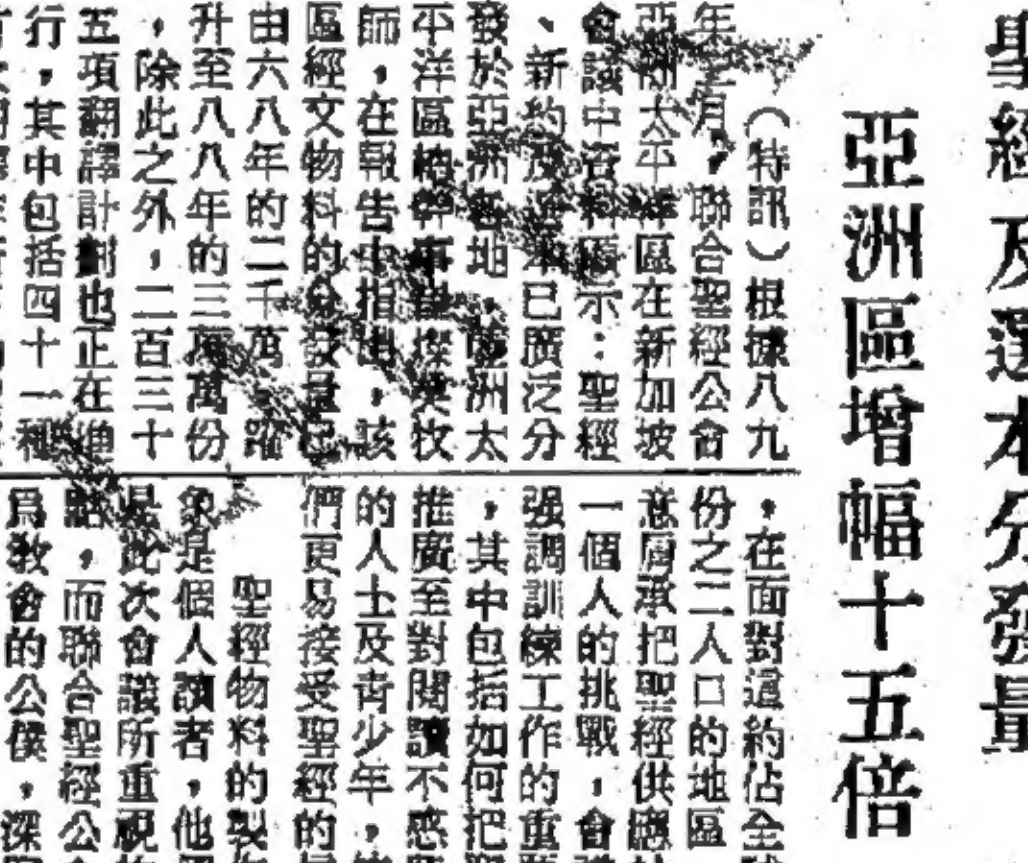 聖經及選本分發量
亞洲區增幅十五倍
（特訊）根據八九
年 月，聯合聖經公會
亞洲太平洋區在新加坡
會議中資料顯示：聖經
、新約及 本已廣泛分
發於亞洲各地，據洲太
平洋區 幹事 燦英牧
師，在報告中指出，該
區經文物料的分發量已
由六八年的二千萬，躍
升至八八年的三萬萬份
，除此之外，二百三十
五項翻譯計劃也正在進
行，其中包括四十一種
，在面對這約佔全
份之二人口的地區
意圖承把聖經供應
一個人的挑戰，會
强調訓練工作的重
，其中包括如何把
推廣至對閱讀不感
的人士及青少年，
們更易接受聖經的
聖經物料的製
象是個人讀者，他
是此次會議所重視
點，而聯合聖經公
爲教會的公僕，深